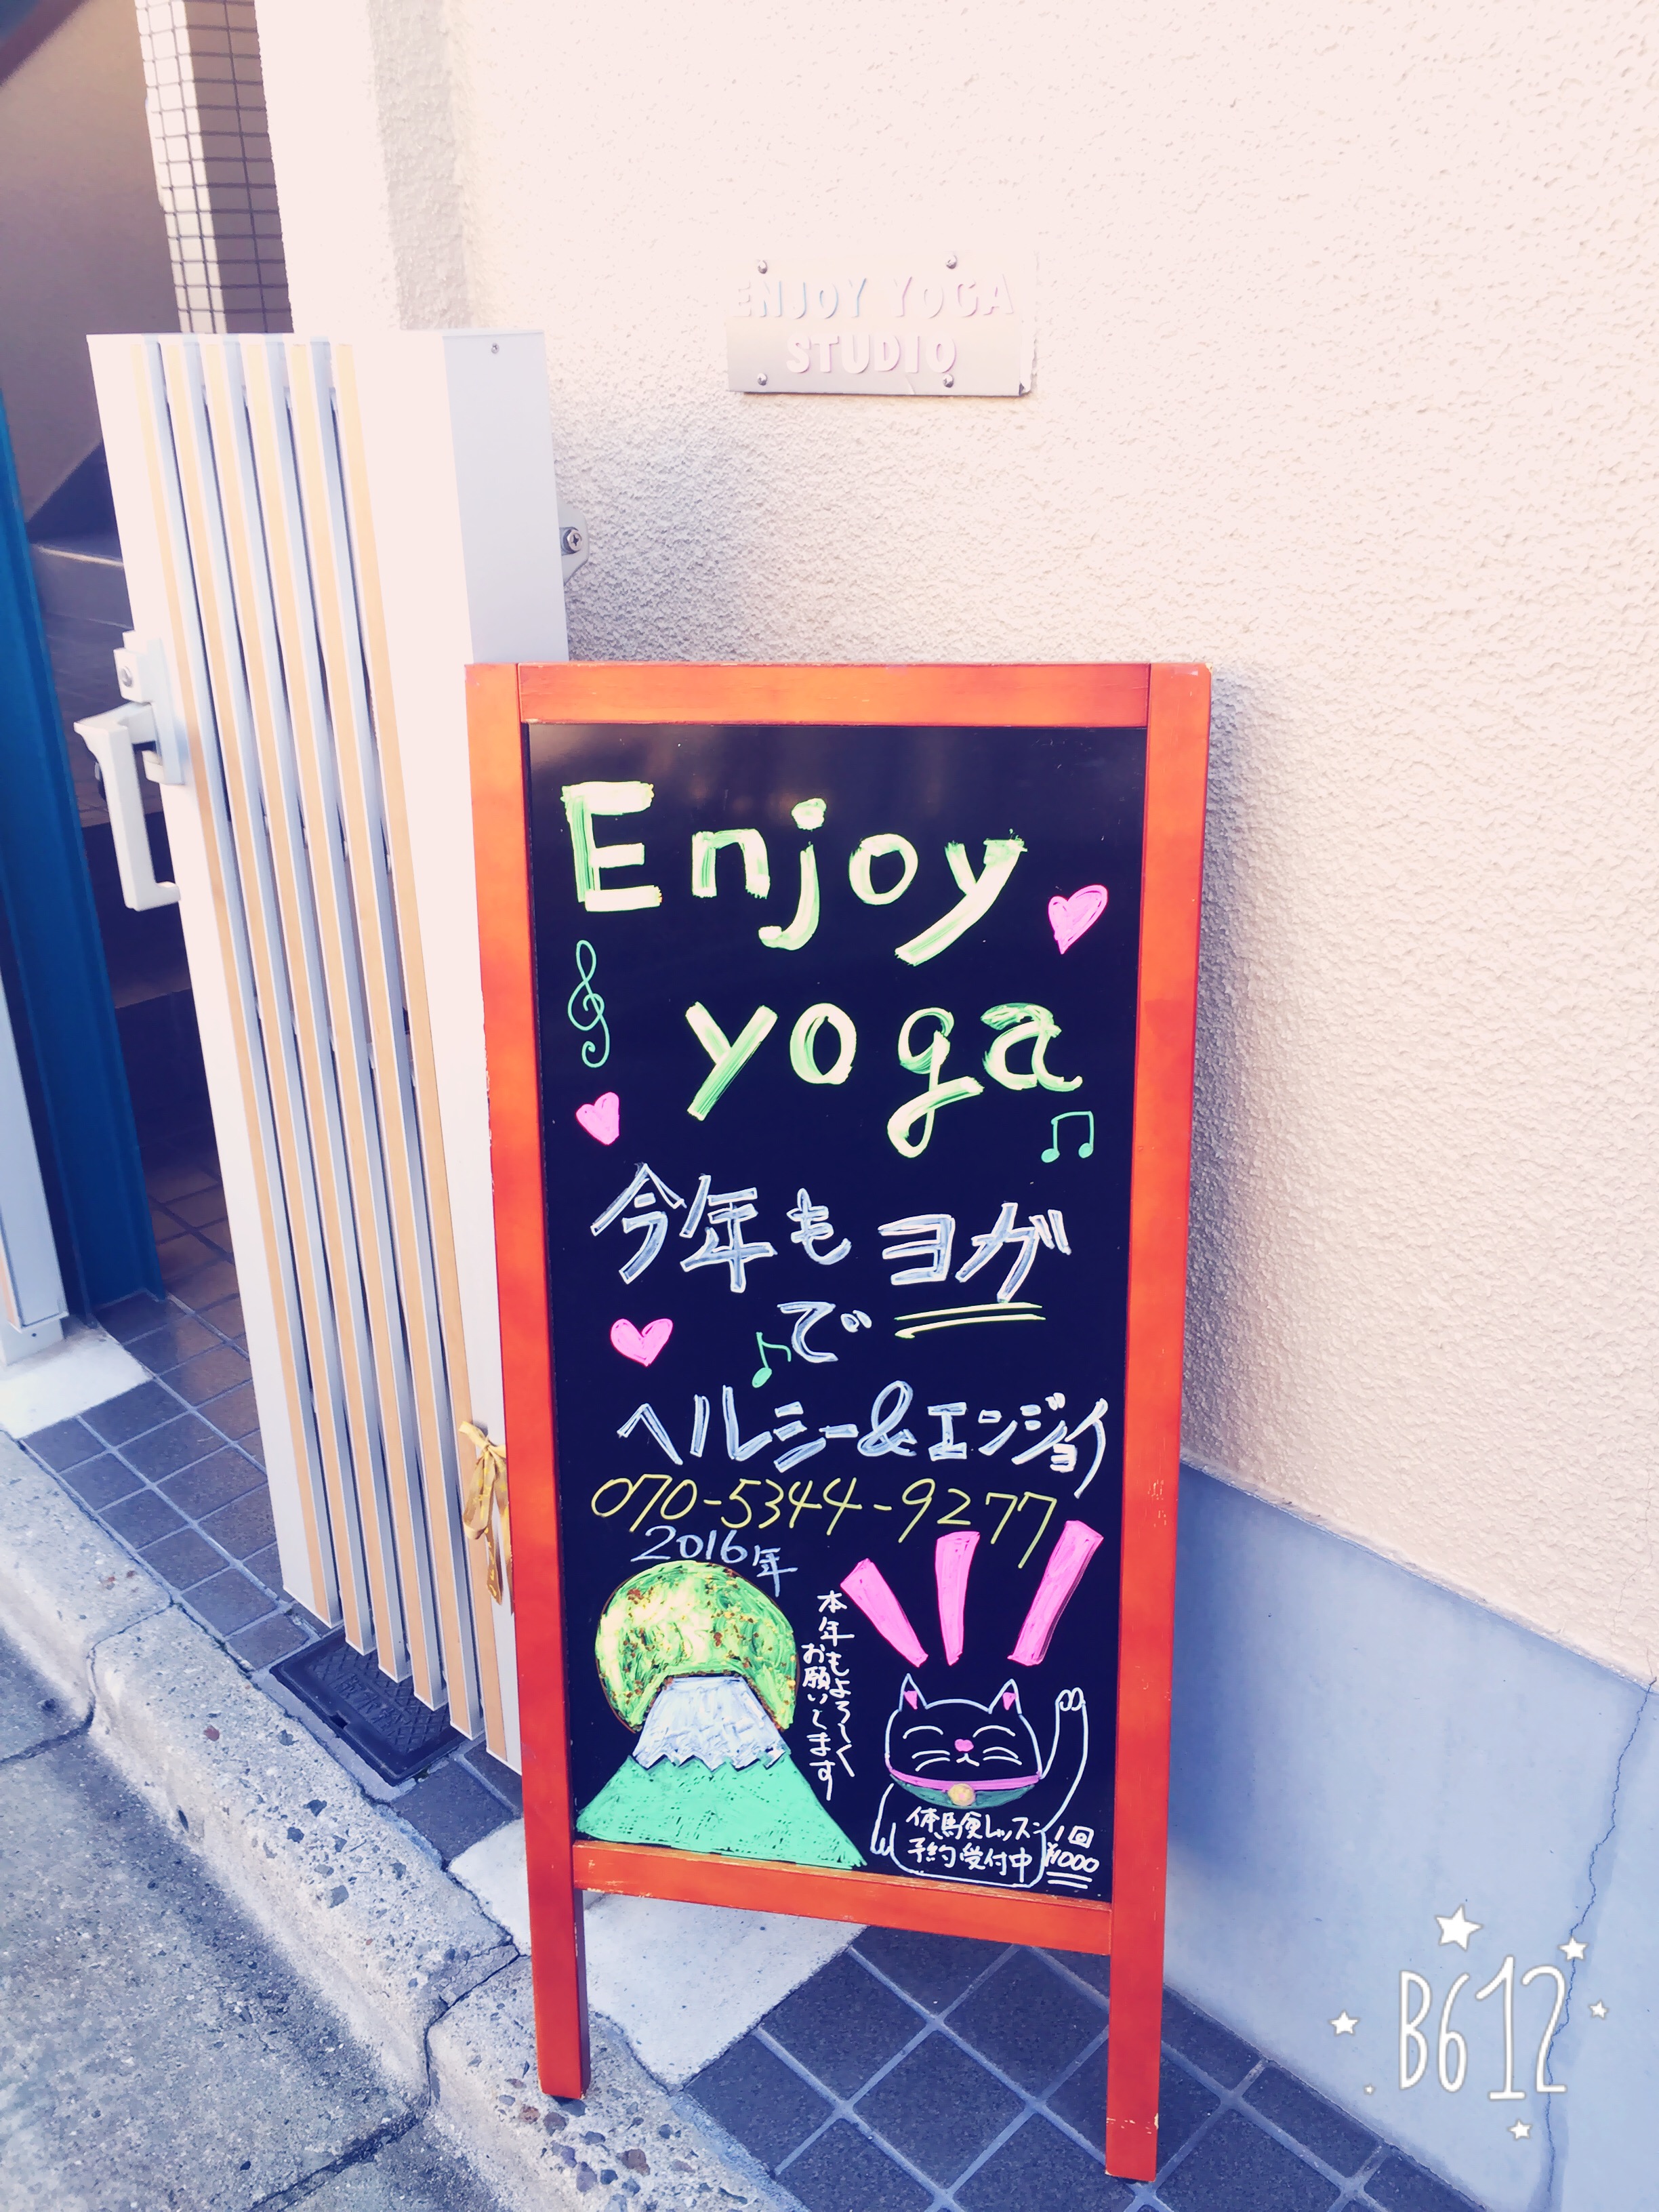 ENJOY YOGA
STUDIO
Enjoy
yoga
今年もヨガ
で
ヘルシー&エンジョイ
070-5344-9277
2016年
本年もよろしく
お願いします
体験レッスン1回
予約受付中 ¥1000
B612